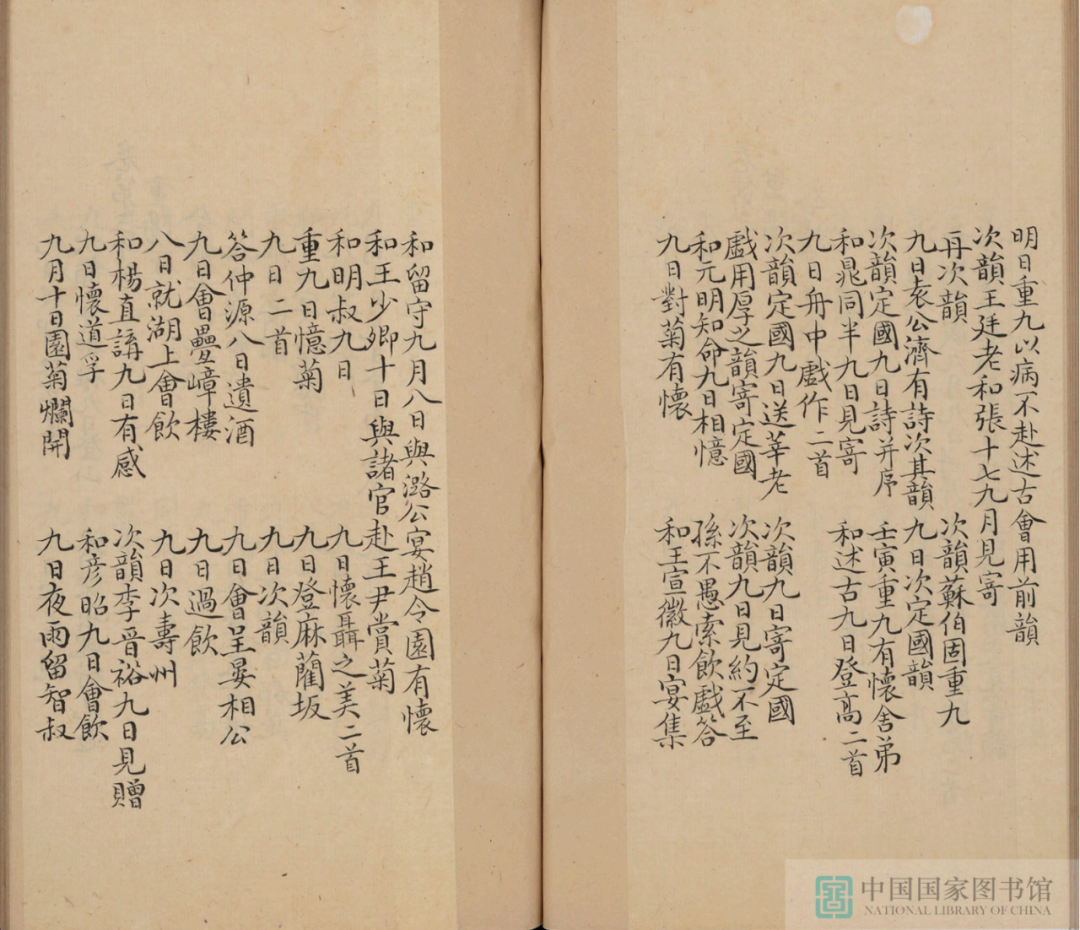 明日重九以病不赴述古會用前韻
次韻王廷老和張十七九月見寄
再次韻　次韻蘇伯固重九
九日袁公濟有詩次其韻　九日次定國韻
次韻定國九日詩并序　壬寅重九有懷舍弟
和晁同年九日見寄　和述古九日登高二首
九日舟中戲作二首
次韻定國九日送莘老　次韻九日寄定國
戲用厚之韻寄定國　次韻九日見約不至
和元明知命九日相憶　孫不愚索飲戲答
九日對菊有懷　和王宣徽九日宴集
和留守九月八日與潞公宴趙令園有懷
和王少卿十日與諸官赴王尹賞菊
和明叔九日　九日懷聶之美二首
重九日憶菊　九日登麻蘭坂
九日二首　九日次韻
答仲源八日遺酒　九日會呈晏相公
九日會疊嶂樓　九日過飲
八日就湖上會飲　九日次壽州
和楊直講九日有感　次韻李晉裕九日見贈
九日懷道孚　和彥昭九日會飲
九月十日園菊爛開　九日夜雨留智叔
中国国家图书馆
NATIONAL LIBRARY OF CHINA